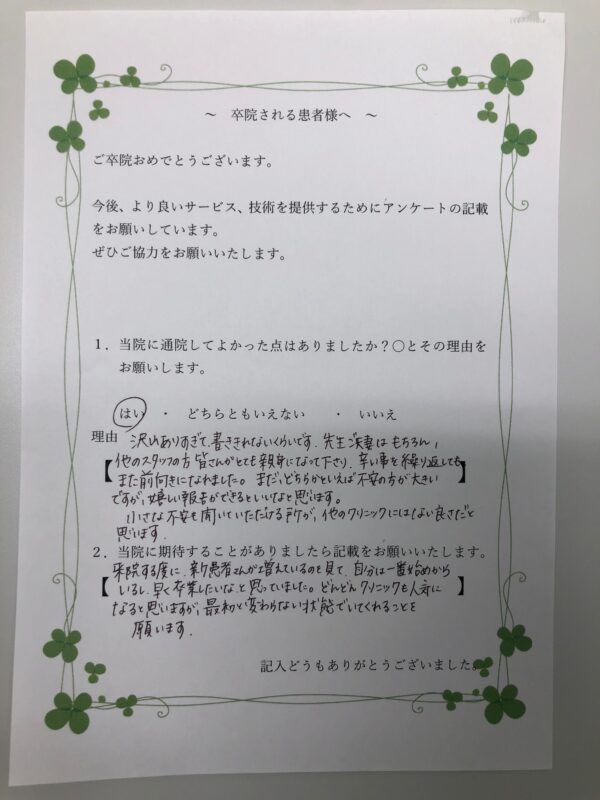 ～ 卒院される患者様へ ～
ご卒院おめでとうございます。
今後、より良いサービス、技術を提供するためにアンケートの記載
をお願いしています。
ぜひご協力をお願いいたします。
１．当院に通院してよかった点はありましたか？〇とその理由を
お願いします。
はい ・ どちらともいえない ・ いいえ
理由 沢山ありすぎて、書ききれないくらいです。先生ご夫妻はもちろん、
【他のスタッフの方皆さんがとても親身になって下さり、辛い事を繰り返しても】
また前向きになれました。まだ、どちらかといえば不安の方が大きい
ですが、嬉しい報告ができるといいなと思います。
小さな不安も聞いていただける所が、他のクリニックにはない良さだと
思います。
２．当院に期待することがありましたら記載をお願いいたします。
来院する度に、新患者さんが増えているのを見て、自分は一番始めから
【いるし、早く卒業したいな、と思っていました。どんどんクリニックも人気に】
なると思いますが、最初と変わらない状態でいてくれることを
願います。
記入どうもありがとうございました。